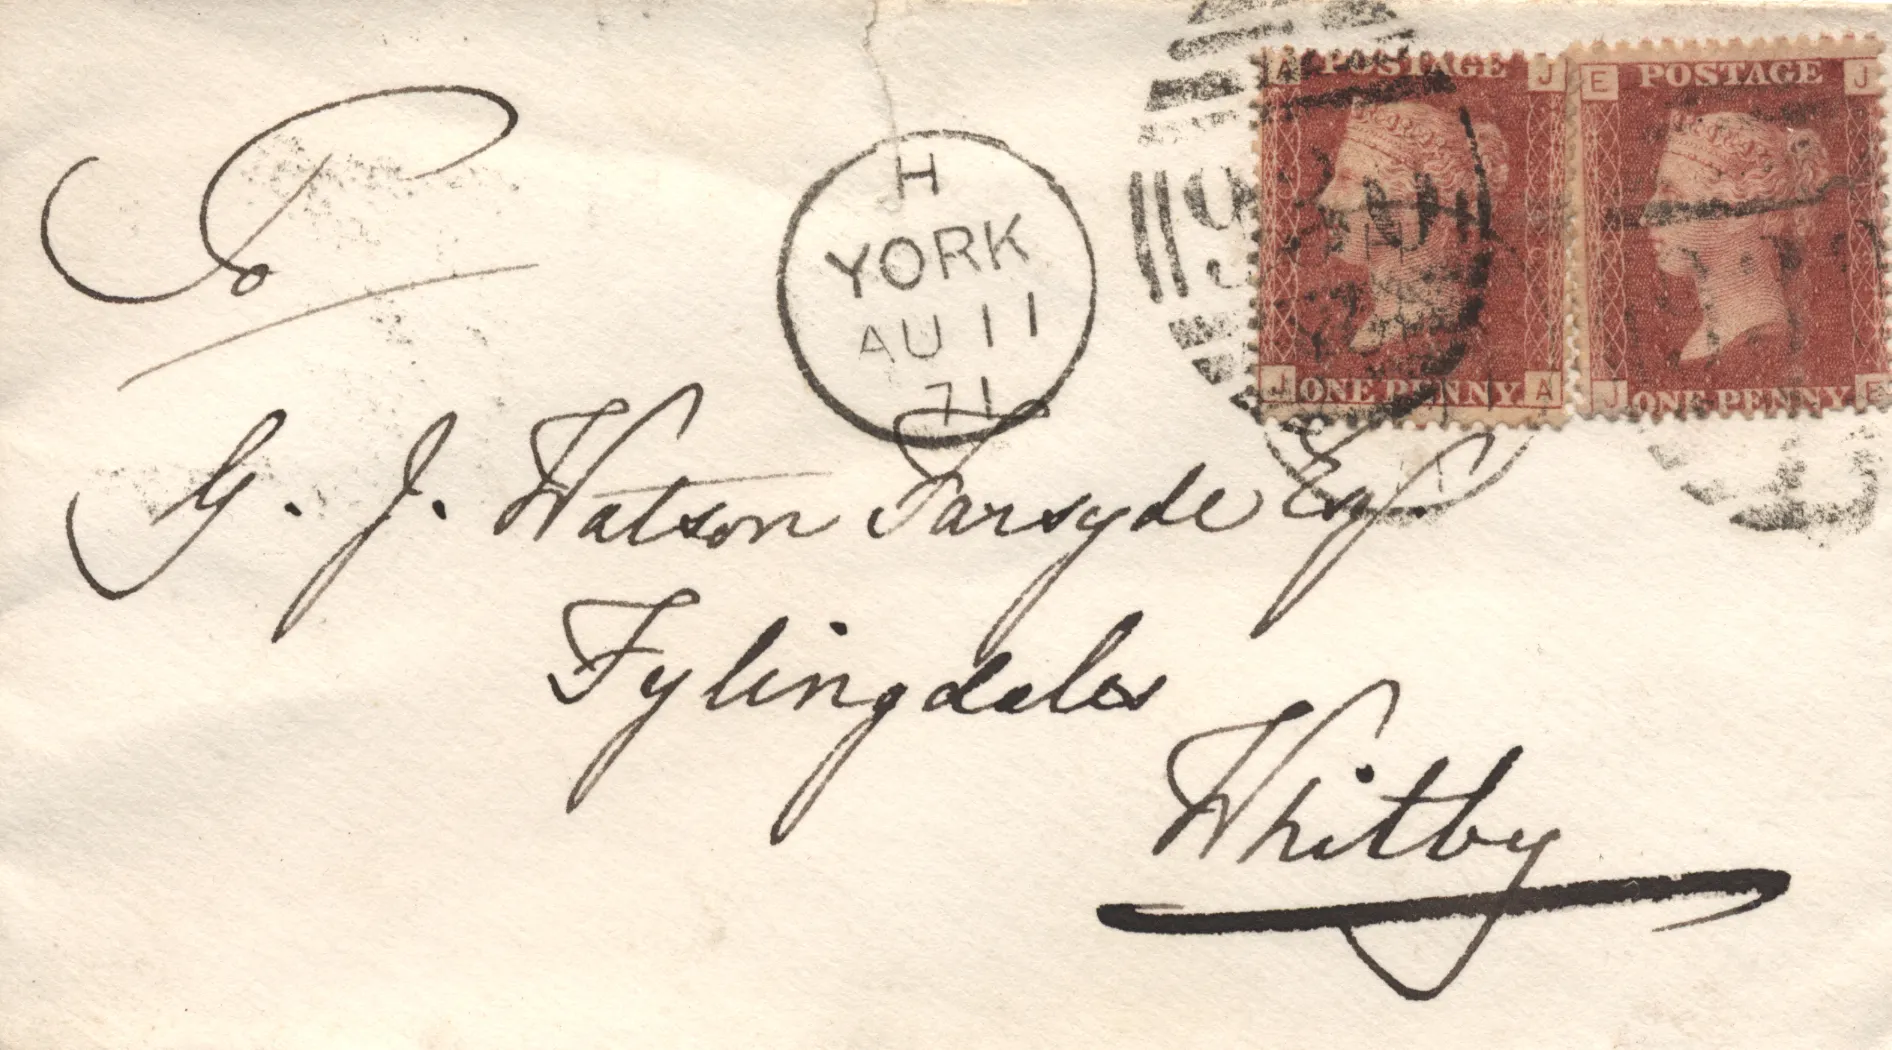 H
YORK
AU 11
71
A POSTAGE J
J ONE PENNY A
E POSTAGE J
J ONE PENNY E
G. J. Watson Farsyde Esqr
Fylingdales
Whitby